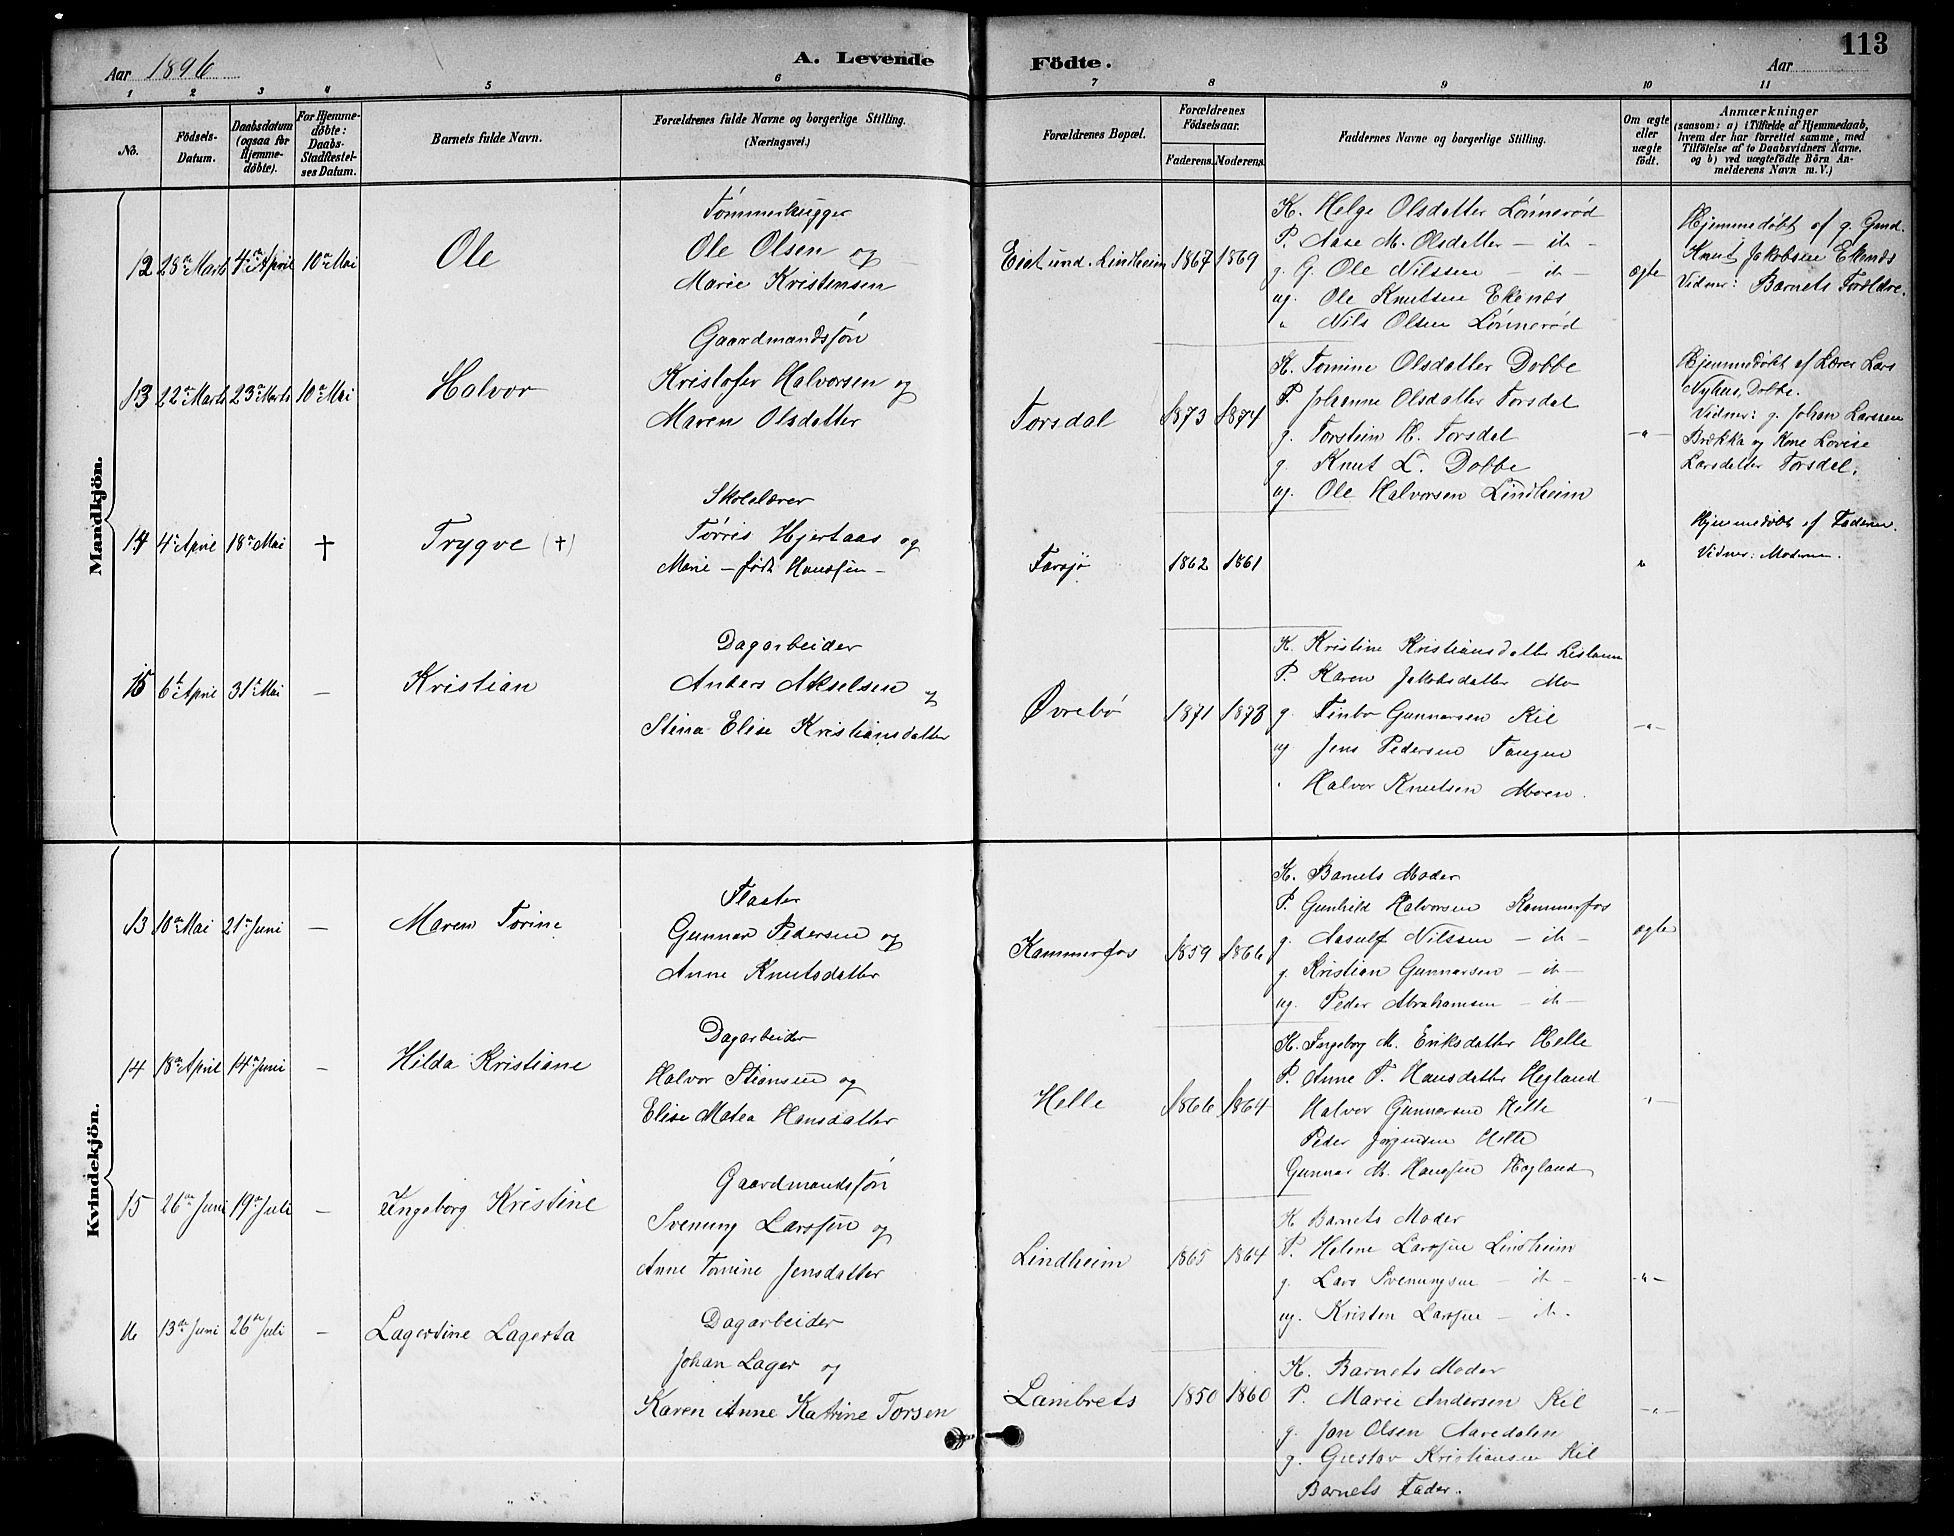 Aar 1896
A. Levende
Födte.
Aar
113
1 2 3 4 5 6 7 8 9 10 11
No.
Födsels-Datum.
Daabsdatum (ogsaa for Hjemmedöbte).
For Hjemmedöbte: Daabs-Stadfestelses Datum.
Barnets fulde Navn.
Forældrenes fulde Navne og borgerlige Stilling.
(Næringsvei.)
Forældrenes Bopæl.
Forældrenes Födselsaar.
Faderens. Moderens.
Faddernes Navne og borgerlige Stilling.
Om ægte eller uægte födt.
Anmærkninger
(saasom: a) i Tilfælde af Hjemmedaab,
hvem der har forrettet samme, med
Tilföielse af to Daabsvidners Navne.
og b) ved uægtefödte Börn An-
melderens Navn m. V.)
Mandkjön.
12 28de Marts 4de April 10de Mai
Ole
Tømmerhugger
Ole Olsen og
Marie Kristensen
Eiet und. Lindheim 1867 1869
K. Helge Olsdatter Lønnerød
P. Aase M. Olsdatter — it —
g. G. Ole Nilssen — it —
ug. Ole Knutsen Ekenæs
" Nils Olsen Lønnerød
ægte
Hjemmedøbt af g. Gmd.
Knut Jakobsen Ekenæs
Vidner: Barnets Forældre.
13 22de Marts 23de Marts 10de Mai
Halvor
Gaardmandssøn
Kristofer Halvorsen og
Maren Olsdatter
Torsdal 1873 1874
K. Tomine Olsdatter Dobbe
P. Johanne Olsdatter Torsdal
g. Torstein H. Torsdal
g. Knut L. Dobbe
ug. Ole Halvorsen Lindheim
— " —
Hjemmedøbt af Lærer Lars
Nyhus, Dobbe.
Vidner: g. Johan Larssen
Brækka og Kone Lovise
Larsdatter Torsdal.
14 4de April 18de Mai †
Trygve (†)
Skolelærer
Tørris Hjertaas og
Marie — født Hanssen —
Farsjø 1862 1861
"
Hjemmedøbt af Faderen.
Vidner: Moderen.
15 6te April 31te Mai —
Kristian
Dagarbeider
Anders Akselsen og
Stina Elise Kristiansdatter
Øvrebø 1871 1873
K. Kristine Kristiansdatter
P. Karen Jakobsdatter Mo
g. Finbo Gunnarsen Kil
ug. Jens Pedersen Tangen
" Halvor Knutsen Moen.
— " —
Kvindekjön.
13 10de Mai 21de Juni —
Maren Torine
Flaater
Gunnar Pedersen og
Anne Knutsdatter
Kammerfos 1859 1866
K. Barnets Moder
P. Gunhild Halvorsen Kammerfos
g. Aasulf Nilssen — it —
g. Kristian Gunnarsen — it —
ug. Peder Abrahamsen — it —
ægte
14 18de April 14de Juni —
Hilda Kristiane
Dagarbeider
Halvor Stiansen og
Elise Matea Hansdatter
Helle 1866 1864
K. Ingeborg M. Eriksdatter Helle
P. Anne T. Hansdatter Hegland
Halvor Gunnarsen Helle
Peder Jørgensen Helle
Gunnar M. Hanssen Hegland
"
15 26de Juni 19de Juli —
Ingeborg Kristine
Gaardmandssøn
Svenung Larssen og
Anne Tomine Jensdatter
Lindheim 1865 1864
K. Barnets Moder
P. Helene Larssen Lindheim
g. Lars Svenungsen — it —
ug. Kristen Larssen — it —
— " —
16 13de Juni 26de Juli —
Lagertine Lagerta
Dagarbeider
Johan Lager og
Karen Anne Katrine Torsen
Lambrets 1850 1860
K. Barnets Moder
P. Marie Andersen Kil
g. Jon Olsen Aaredalen
g. Gustav Kristiansen Kil
Barnets Fader.
— " —